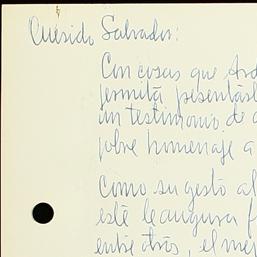 Querido Salvador:
Con cosas que
permita presentarl
un testimonio de
pobre homenaje a
Como su gesto al
este le augura f
entre otros, el mej